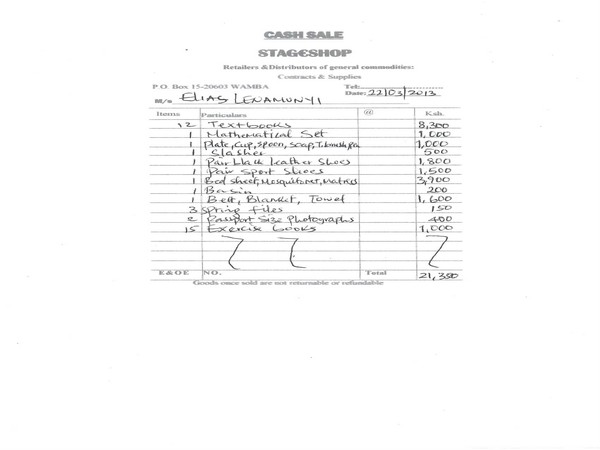 CASH SALE
STAGESHOP
Retailers & Distributors of general commodities:
Contracts & Supplies
P.O. Box 15-20603 WAMBA Tel:
M/s ELIAS LENAMUNYI Date: 22/03/2013
Items Particulars @ Ksh.
12 Textbooks 8,300
1 Mathematical Set 1,000
1 Plate, Cup, Spoon, Soap, 1,000
1 Slasher 500
1 Pair black leather Shoes 1,800
1 Pair Sport Shoes 1,500
1 Bed sheet, Mosquitonet, Matress 3,900
1 Basin 200
1 Belt, Blanket, Towel 1,600
3 Spring Files 150
Passport Size Photographs 400
15 Exercise books 1,000
E&OE NO. Total 21,350
Goods once sold are not returnable or refundable